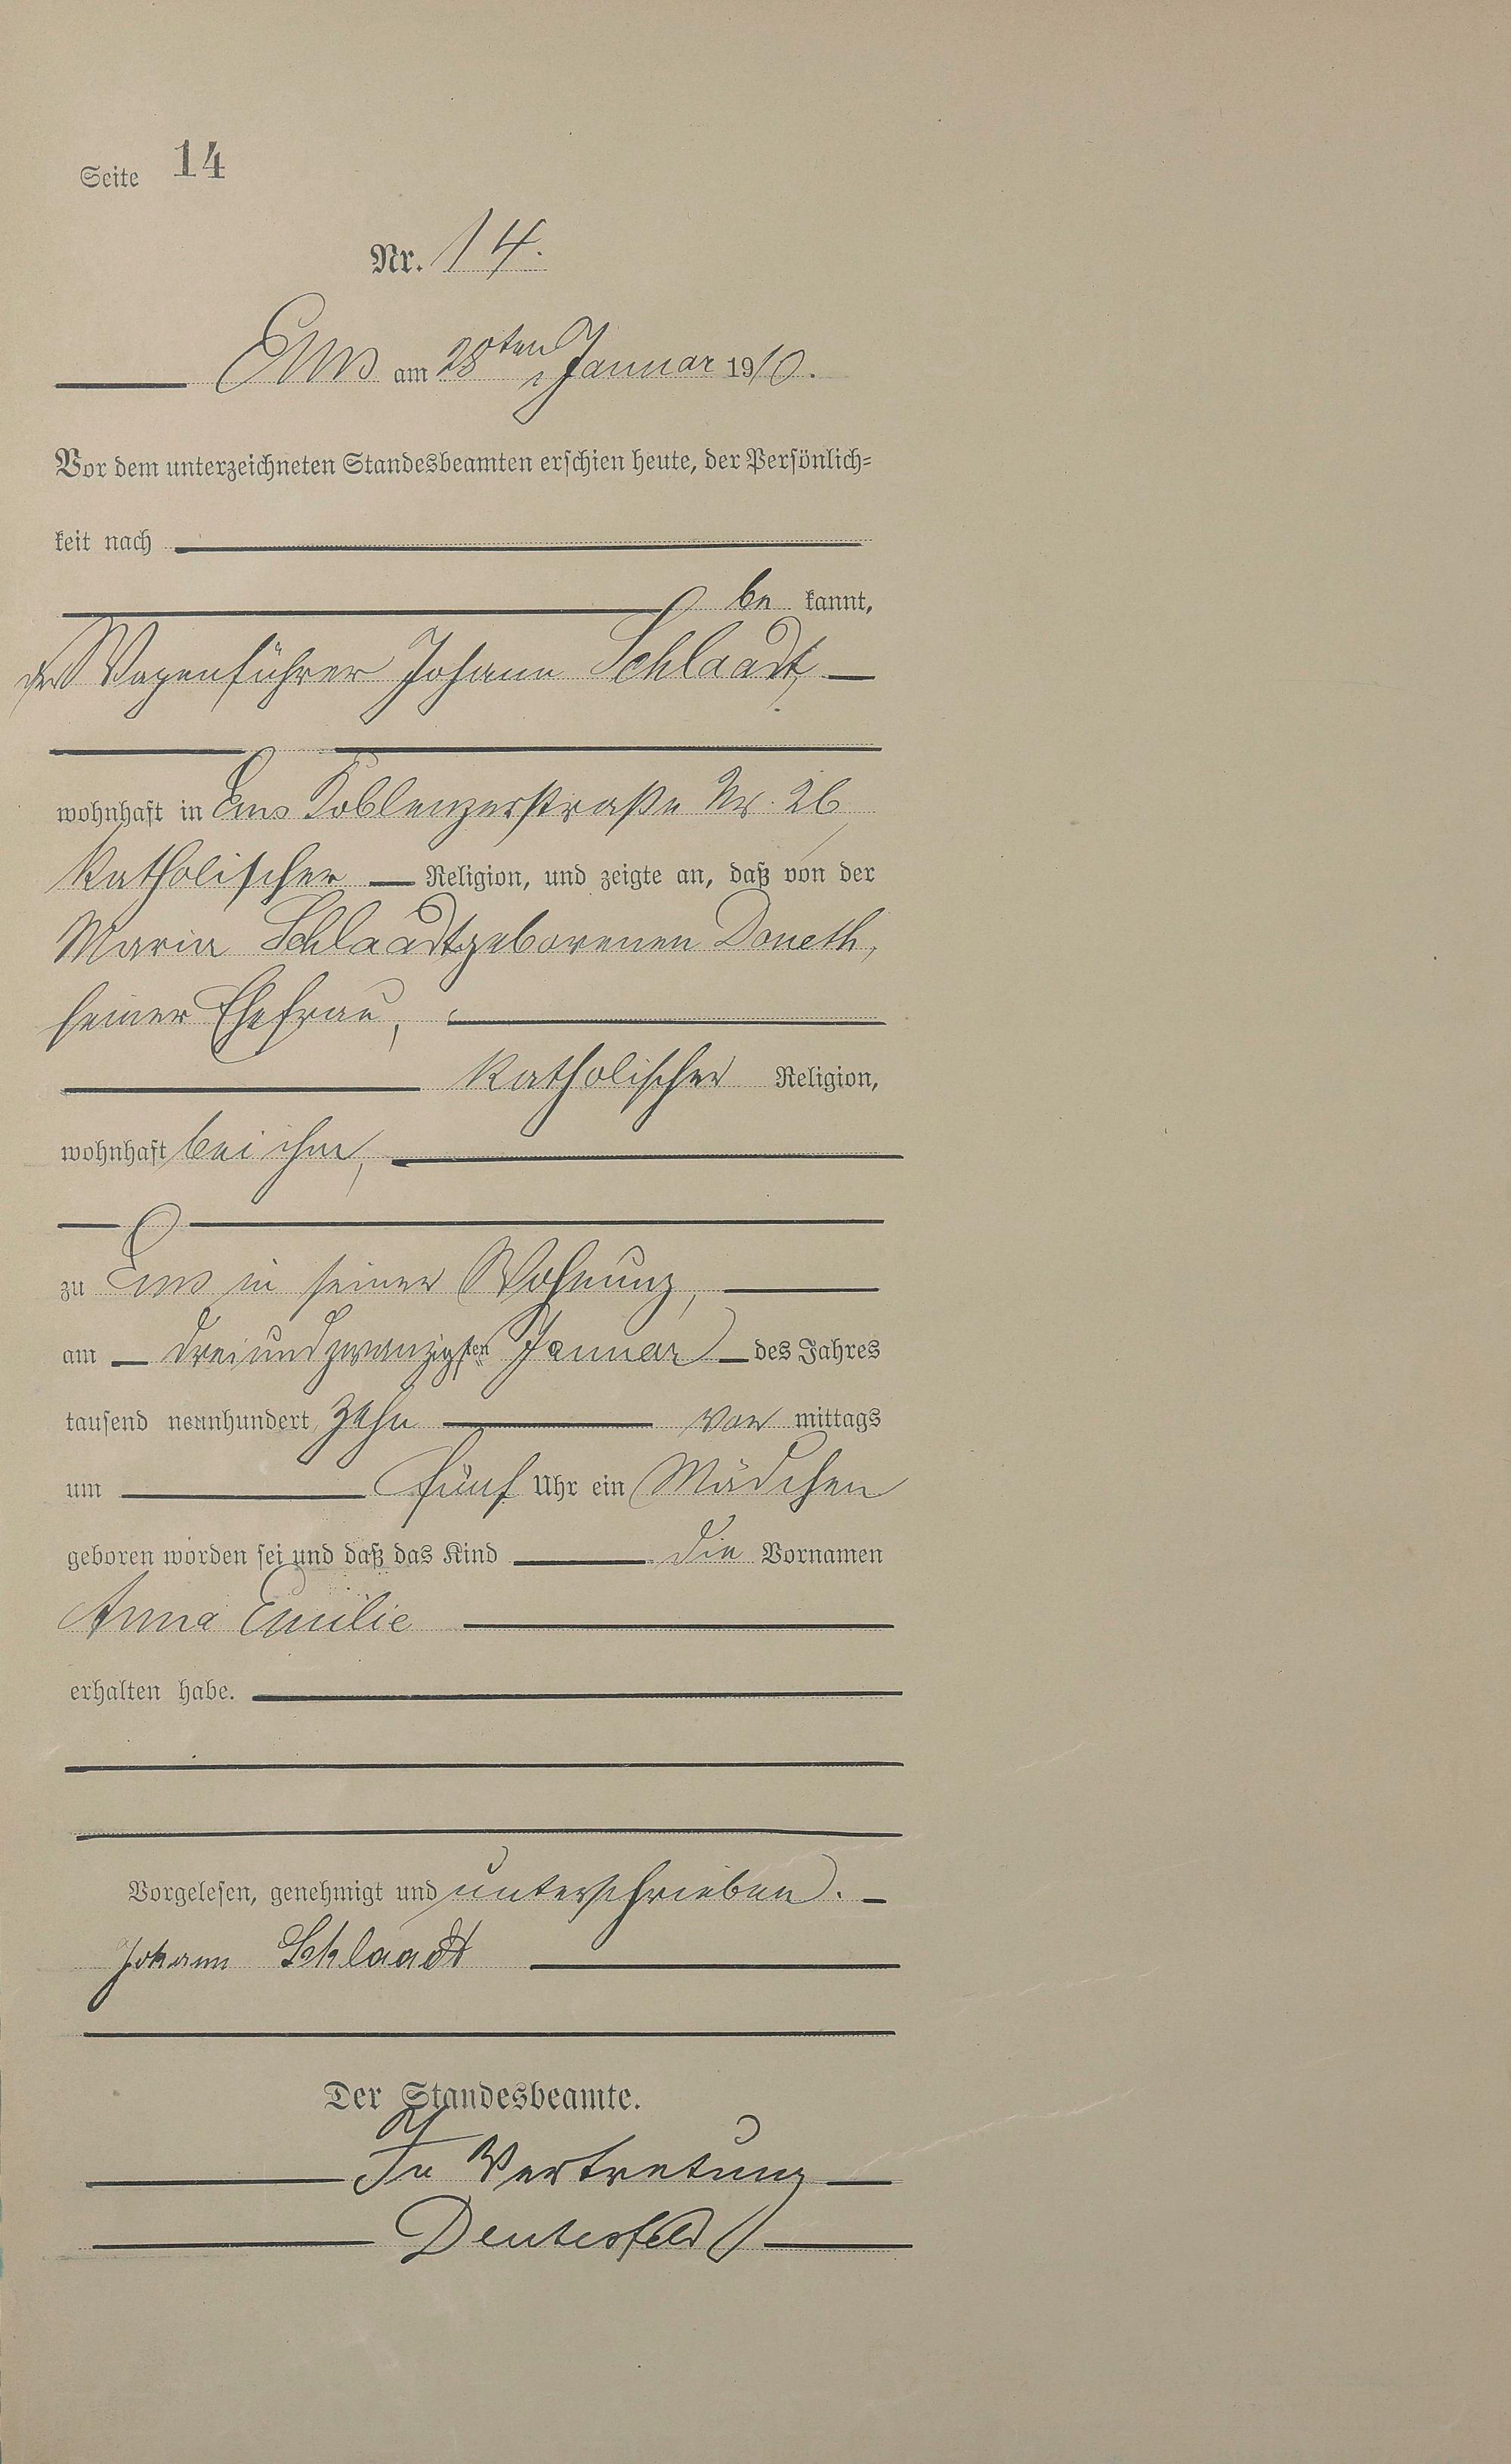 Seite 14
Nr. 14.
Ems am 28ten Januar 1910.
Vor dem unterzeichneten Standesbeamten erschien heute, der Persönlich-
keit nach
be kannt,
der Wagenführer Johann Schlaadt,
wohnhaft in Ems Koblenzerstraße Nr. 26,
katholischer Religion, und zeigte an, daß von der
Maria Schlaadt geborenen Doneth,
seiner Ehefrau,
katholischer Religion,
wohnhaft bei ihm,
zu Ems in seiner Wohnung,
am dreiundzwanzigsten Januar des Jahres
tausend neunhundert zehn vor mittags
um fünf Uhr ein Mädchen
geboren worden sei und daß das Kind die Vornamen
Anna Emilie
erhalten habe.
Vorgelesen, genehmigt und unterschrieben.
Johann Schlaadt
Der Standesbeamte.
In Vertretung